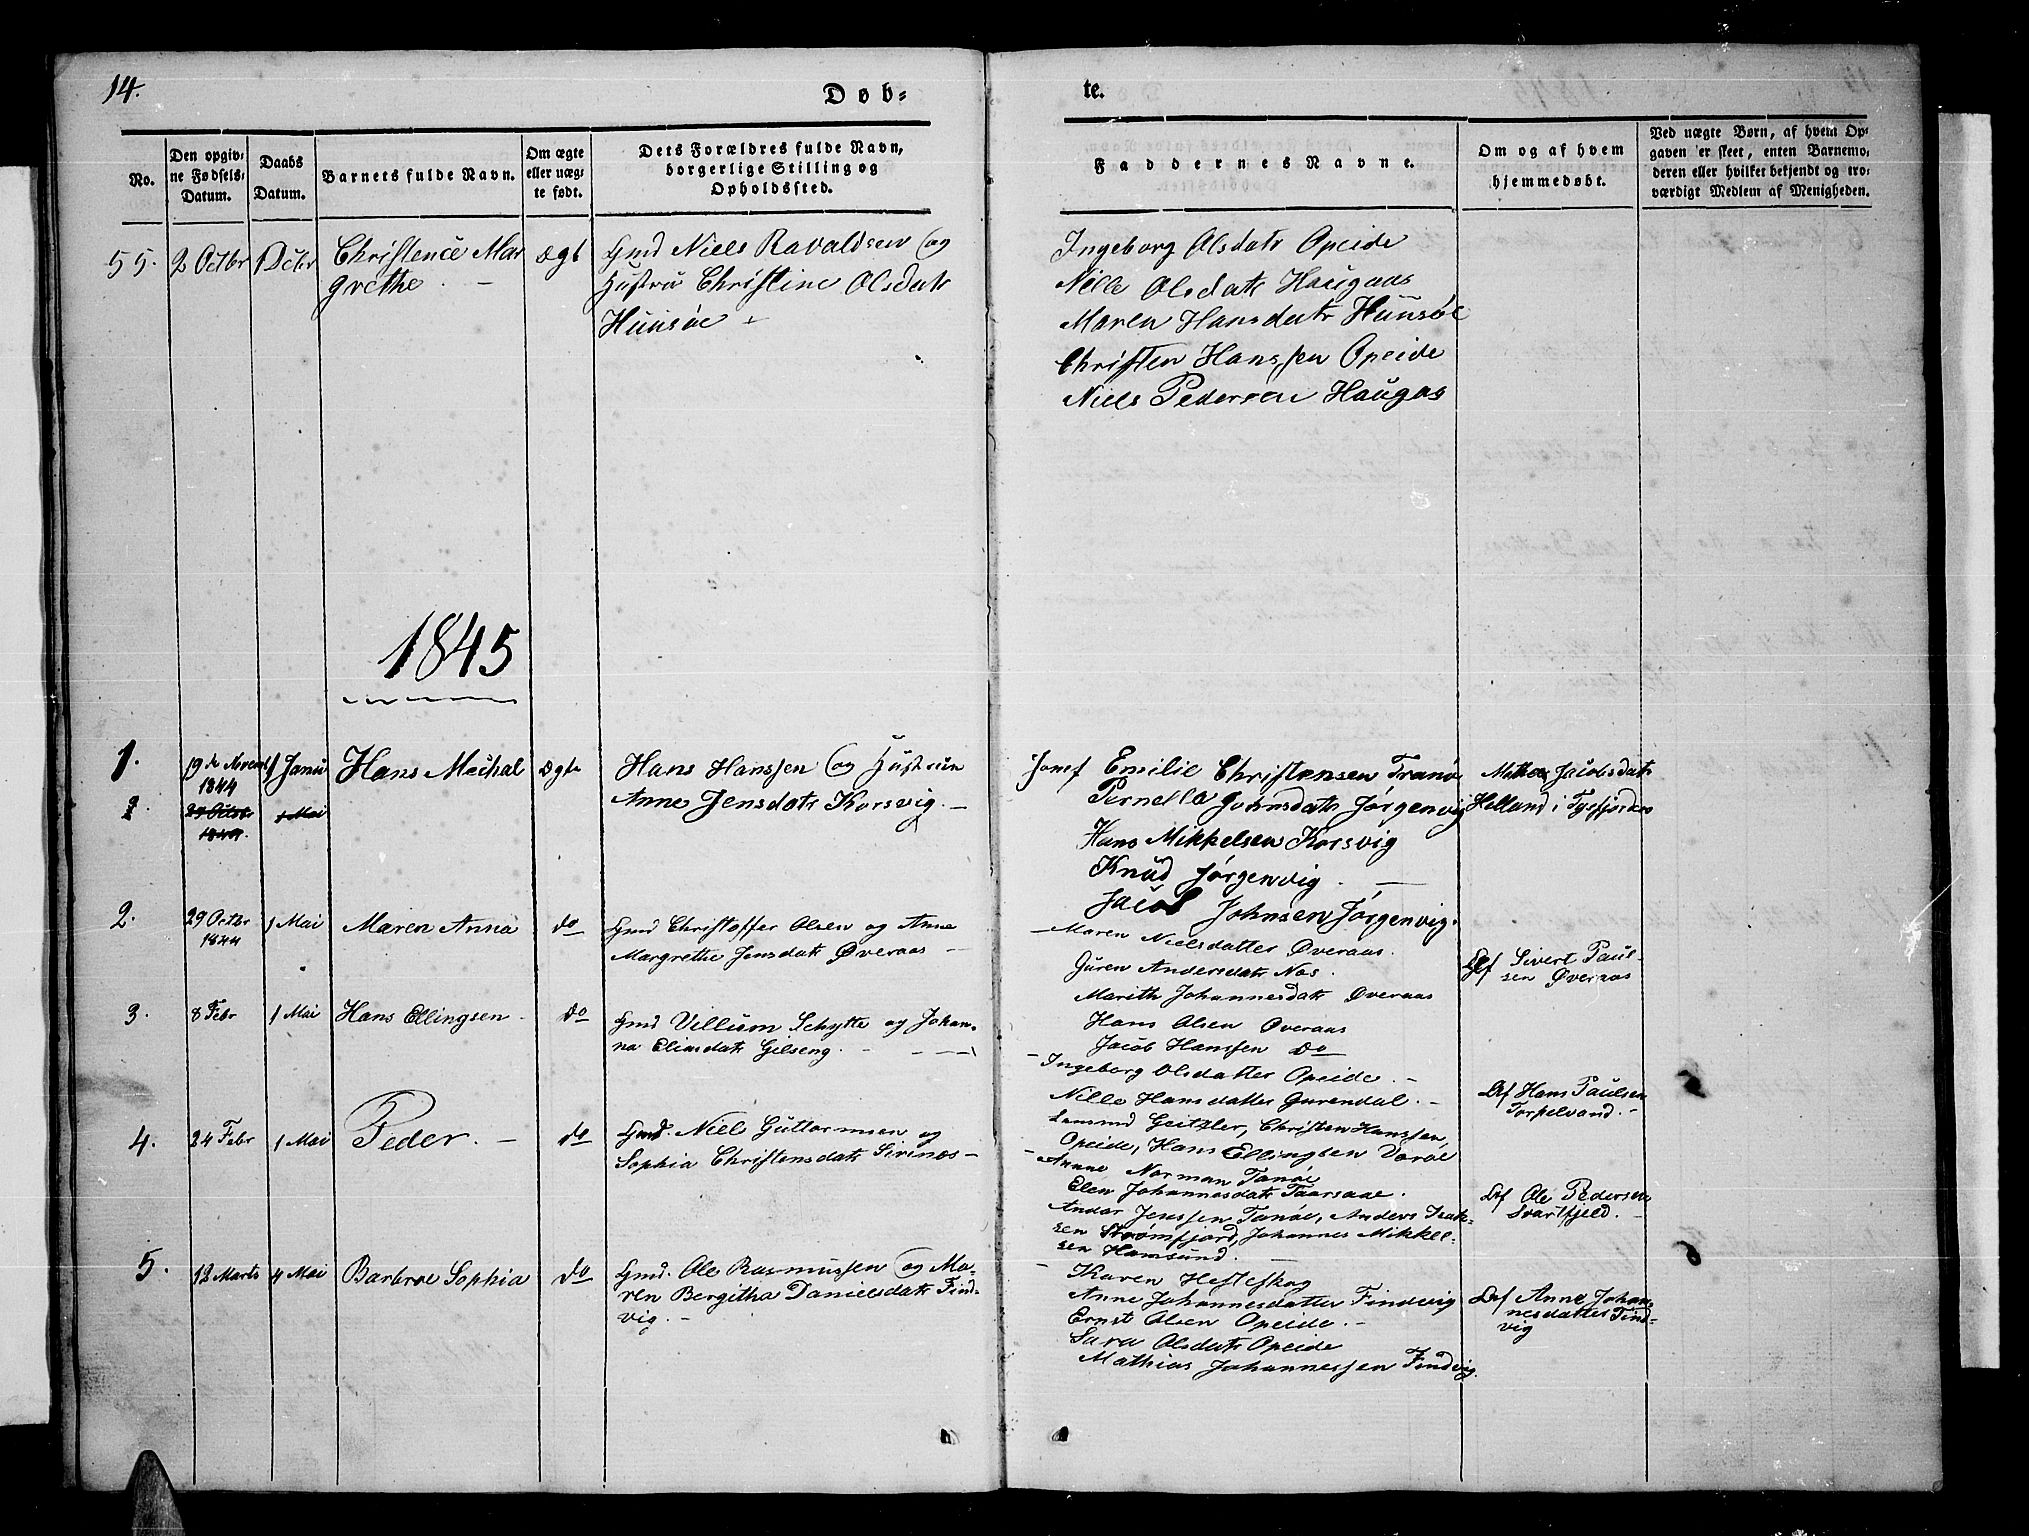 14.
Døb-
te.
No.
Den opgiv-
ne Fødsels-
Datum.
Daabs
Datum.
Barnets fulde Navn.
Om ægte
eller uæg-
te født.
Dets Forældres fulde Navn,
borgerlige Stilling og
Opholdssted.
Faddernes Navne.
Om og af hvem
hjemmedøbt.
Ved uægte Børn, af hvem Op-
gaven er skeet, enten Barnemo-
deren eller hvilket bekjendt og tro-
værdigt Medlem af Menigheden.
55.
2 Octbr
Christence Mar
grethe
ægt
Gmd Niels Ravaldsen og
Hustru Christine Olsdatr
Huusøe
Ingeborg Olsdatr Opeide
Nille Olsdatr Haugaas
Maren Hansdatr Huusøe
Christen Hanssen Opeide
Niels Pedersen Haugas
1845
1.
19de Novemb
1844
1 Janu
Hans Mechal
ægte
Hans Hanssen og Hustrun
Anne Jensdatr Korsvig.
Emilie Christensen Tranø
Pernella Johnsdatr Jørgenvig
Hans Mikkelsen Korsvig
Knud Jørgenvig.
Jacob Johnsen Jørgenvig.
Jacobsdatr
Helland i Tysfjorden
2.
29 Octbr
1844
1 Mai
2.
29 Octbr
1844
1 Mai
Maren Anna
do
Gmd Christoffer Olsen og Anne
Margrethe Jensdatr Øveraas
Maren Nielsdatter Øveraas.
Guren Andersdatr Nes.
Marith Johannesdatr Øveraas
Hans Olsen Øveraas
Jacob Hanssen do
Af Sivert Paul-
sen Øveraas
3.
8 Febr
1 Mai
Hans Ellingsen
do
Gmd Villum Schytte og Johan-
na Eliasdatr Gilseng.
Ingeborg Olsdatter Opeide.
Nille Hansdatter Gurendal.
Christen Hanssen,
Opeide, Hans Ellingsen
Af Hans Paulsen
Torpelvand.
4.
24 Febr
1 Mai
Peder.
do
Gmd. Niels Guttormsen og
Sophia Christensdatr
Anne Norman Tanøe
Elen Johannesdatr
Andor Jenssen Tanøe, Anders Isak-
sen Strømfjord, Johannes Mikkel-
sen Hamsund.
Af Ole Pedersen
Svartfjeld.
5.
12 Marts
4 Mai
Barbroe Sophia
do
Gmd. Ole Rasmussen og Ma-
ren Bergitha Danielsdatr Find-
vig.
Karen Hesteskog
Anne Johannesdatter Findvig
Ernst Olsen Opeide.
Sara Olsdatr Opeide
Mathias Johannessen Findvig.
Af Anne Johan-
nesdatter Find-
vig